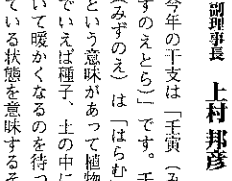 副理事長　上村 邦彦
今年の干支は「壬寅（み
ずのえとら）」です。壬
（みずのえ）は「はらむ」
という意味があって植物
でいえば種子、土の中に
いて暖かくなるのを待っ
ている状態を意味するそ